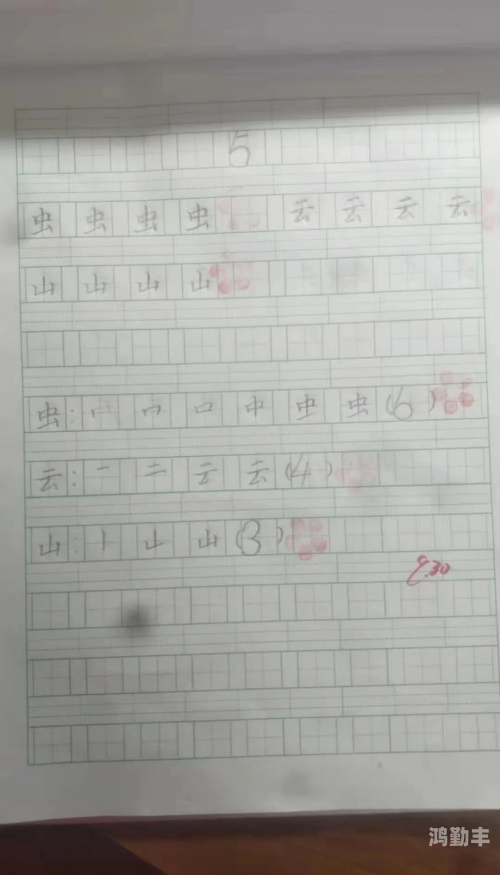 5
虫 虫 虫 虫 云 云 云 云
山 山 山 山
虫: 丨 冂 口 中 虫 虫 (6)
云: 一 二 云 云 (4)
山: 丨 山 山 (3)
9.30
鸿勤丰